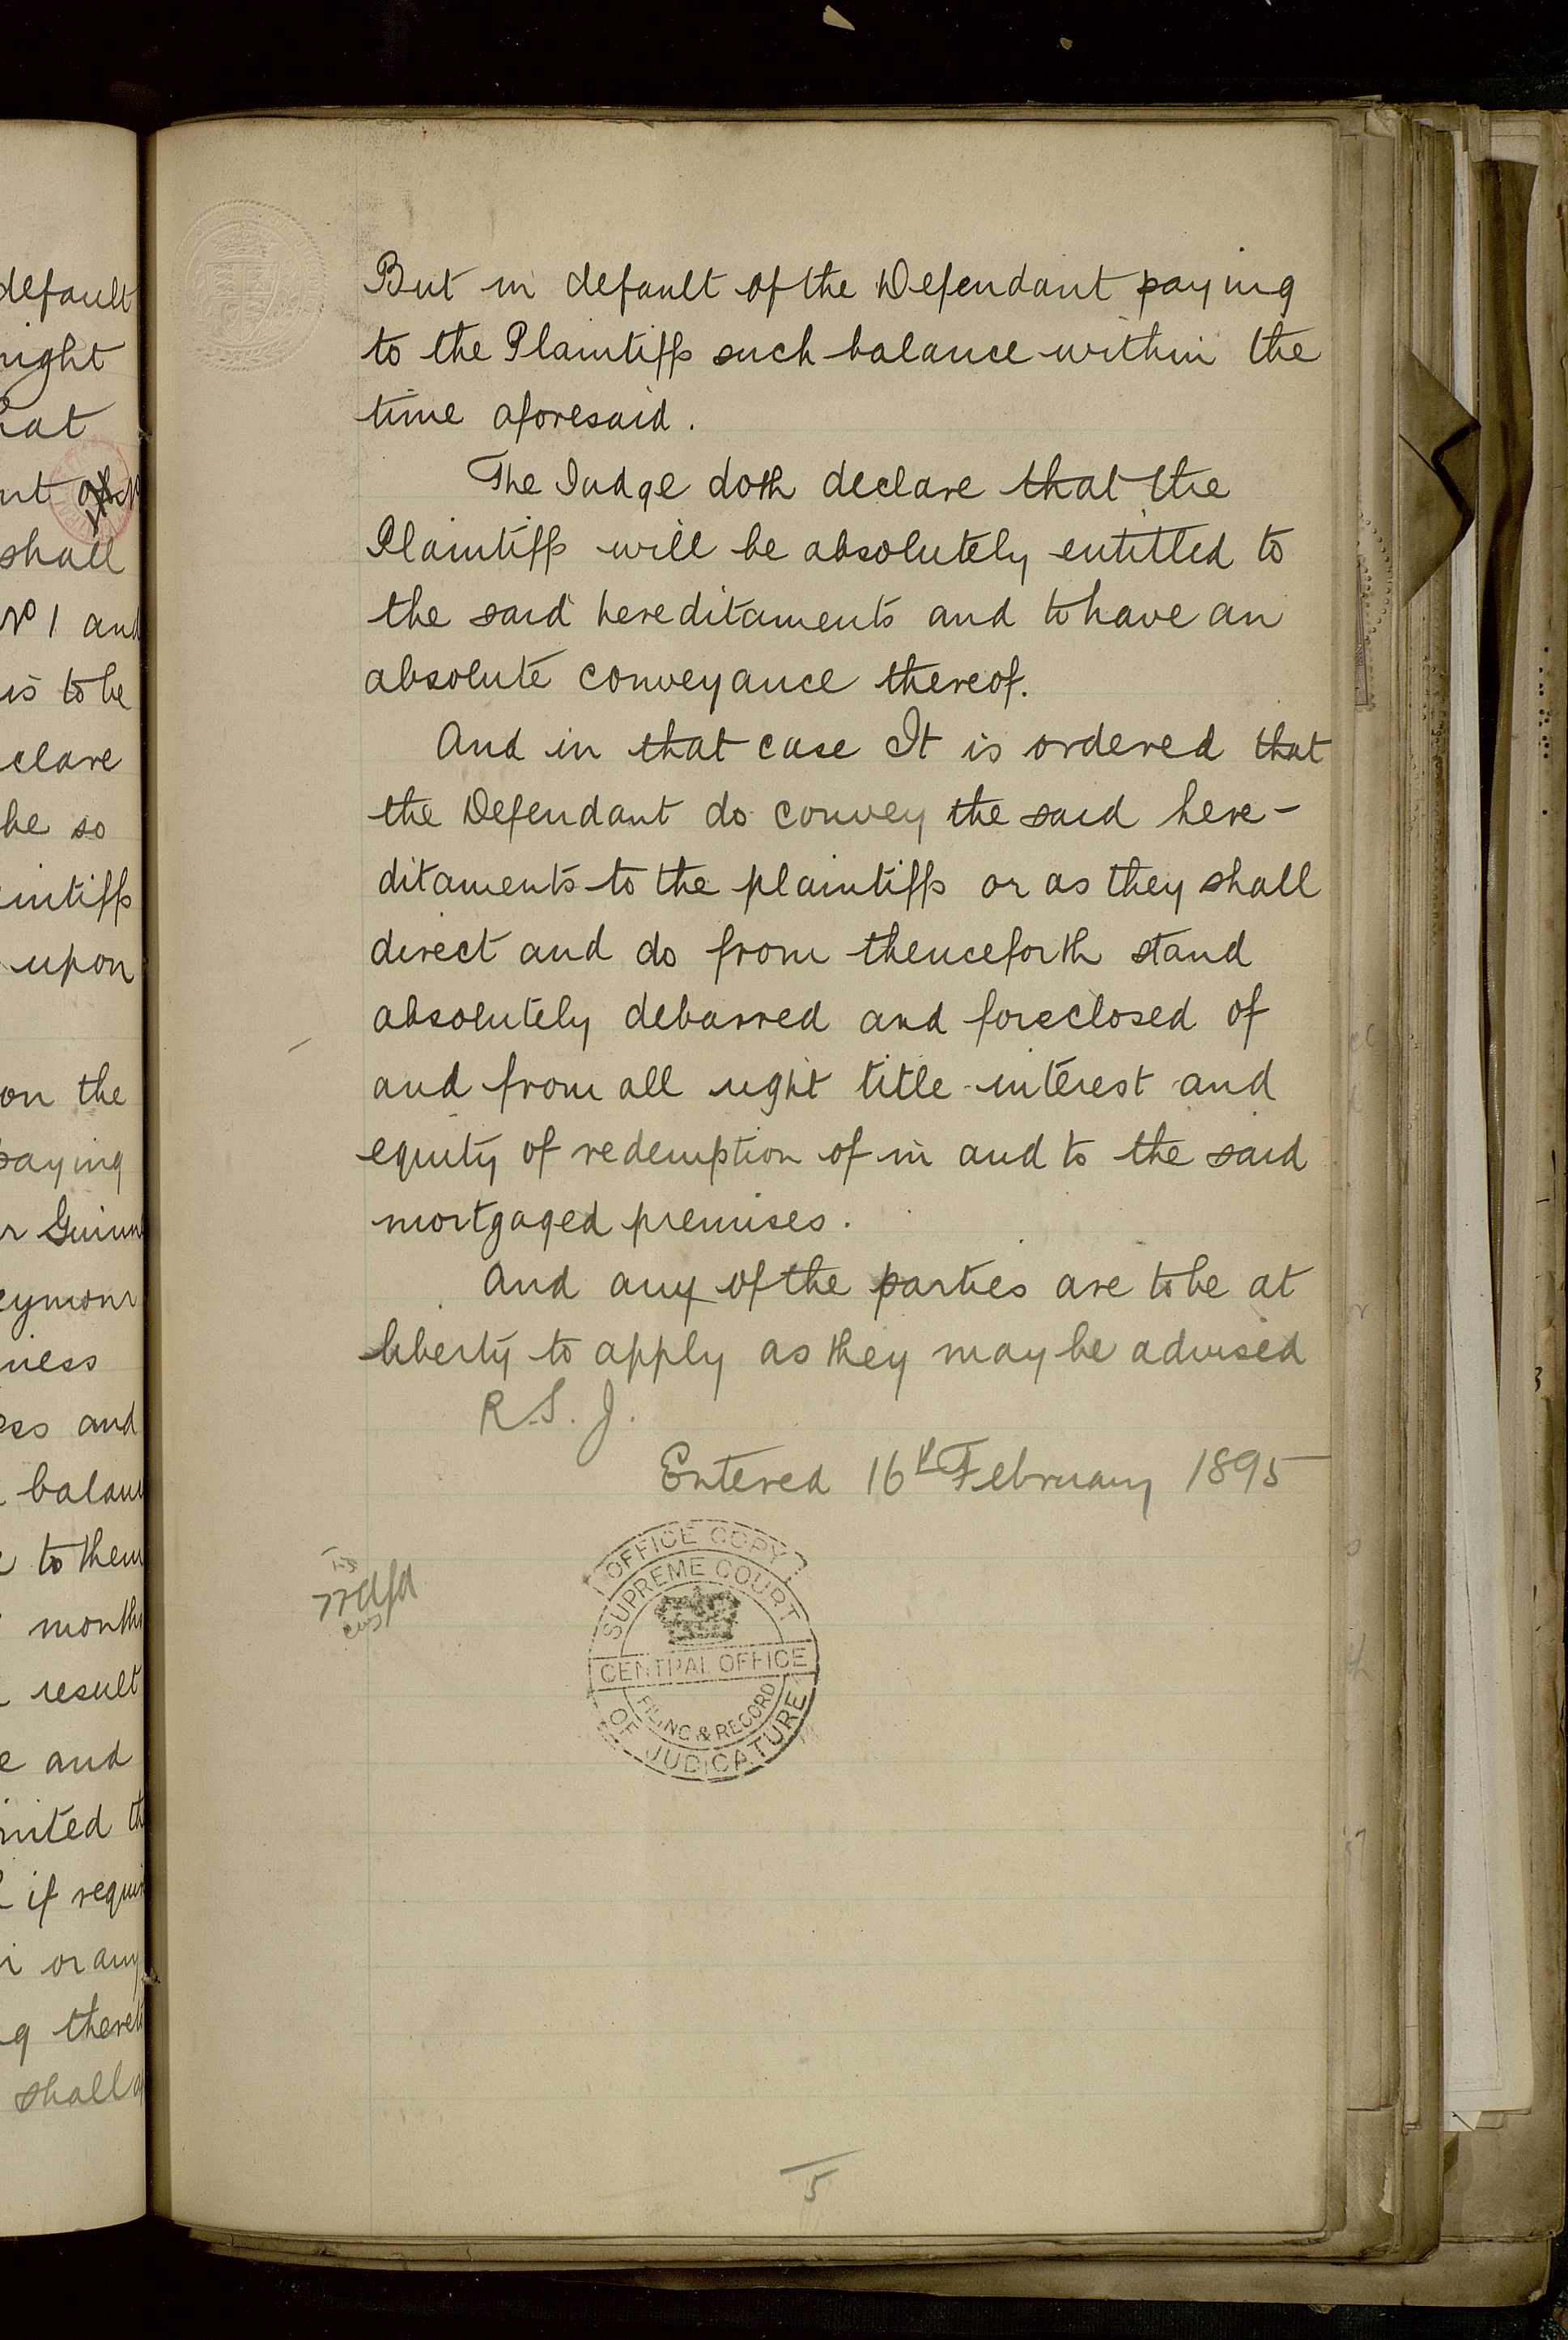 default
night
hat
shall
No 1 and
is to be
clare
be so
intiffs
upon
on the
paying
eymour
ness
ess and
balan
to them
months
result
e and
mited th
if requir
or any
g thereto
shall
But in default of the Defendant paying
to the Plaintiffs such balance within the
time aforesaid.
The Judge doth declare that the
Plaintiffs will be absolutely entitled to
the said hereditaments and to have an
absolute conveyance thereof.
And in that case It is ordered that
the Defendant do convey the said here-
ditaments to the plaintiffs or as they shall
direct and do from thenceforth stand
absolutely debarred and foreclosed of
and from all right title interest and
equity of redemption of in and to the said
mortgaged premises.
And any of the parties are to be at
liberty to apply as they may be advised
R.S.J.
Entered 16th February 1895
OFFICE COPY
SUPREME COURT
CENTRAL OFFICE
FILING & RECORD
OF JUDICATURE
5